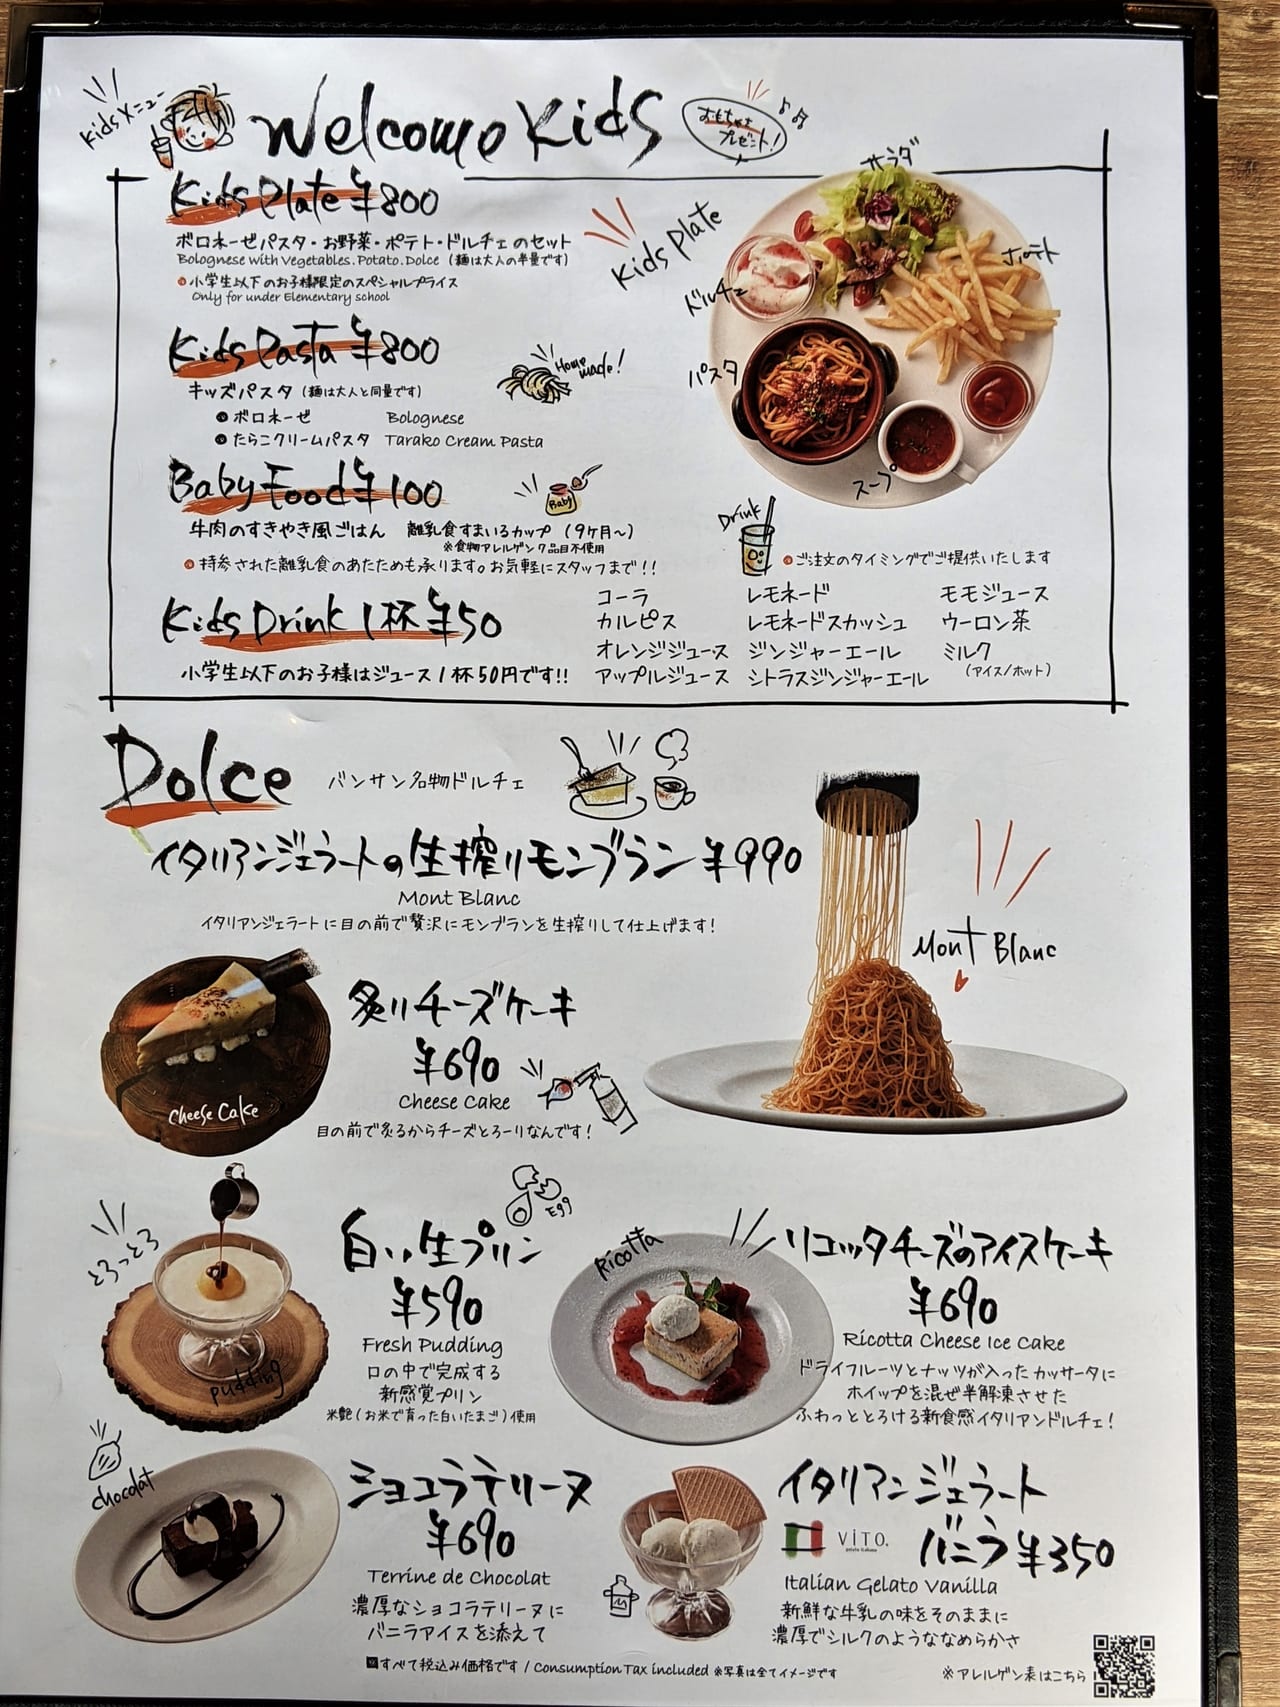 Kidsメニュー
Welcome Kids
おもちゃプレゼント!
Kids Plate ¥800
ボロネーゼパスタ・お野菜・ポテト・ドルチェのセット
Bolognese with Vegetables.Potato.Dolce (麺は大人の半量です)
小学生以下のお子様限定のスペシャルプライス
Only for under Elementary school
Kids Plate
サラダ
ポテト
ドルチェ
パスタ
スープ
Kids Pasta ¥800
Home made!
キッズパスタ (麺は大人と同量です)
ボロネーゼ Bolognese
たらこクリームパスタ Tarako Cream Pasta
Baby Food ¥100
Baby
牛肉のすきやき風ごはん 離乳食すまいるカップ (9ケ月~)
※食物アレルゲン7品目不使用
持参された離乳食のあたためも承ります。お気軽にスタッフまで!!
Kids Drink 1杯 ¥50
小学生以下のお子様はジュース1杯50円です!!
Drink
ご注文のタイミングでご提供いたします
コーラ レモネード モモジュース
カルピス レモネードスカッシュ ウーロン茶
オレンジジュース ジンジャーエール ミルク
(アイス/ホット)
アップルジュース シトラスジンジャーエール
Dolce バンサン名物ドルチェ
イタリアンジェラートの生搾りモンブラン ¥990
Mont Blanc
イタリアンジェラートに目の前で贅沢にモンブランを生搾りして仕上げます!
Mont Blanc
炙りチーズケーキ
¥690
Cheese Cake
目の前で炙るからチーズとろーりなんです!
Cheese Cake
とろっとろ
pudding
Egg
白い生プリン
¥590
Fresh Pudding
口の中で完成する
新感覚プリン
米艶(お米で育った白いたまご)使用
Ricotta
リコッタチーズのアイスケーキ
¥690
Ricotta Cheese Ice Cake
ドライフルーツとナッツが入ったカッサータに
ホイップを混ぜ半解凍させた
ふわっととろける新食感イタリアンドルチェ!
chocolat
ショコラテリーヌ
¥690
Terrine de Chocolat
濃厚なショコラテリーヌに
バニラアイスを添えて
イタリアンジェラート
VITO.
gelato italiano
バニラ ¥350
Italian Gelato Vanilla
新鮮な牛乳の味をそのままに
濃厚でシルクのようななめらかさ
すべて税込み価格です / Consumption Tax included ※写真は全てイメージです
※アレルゲン表はこちら